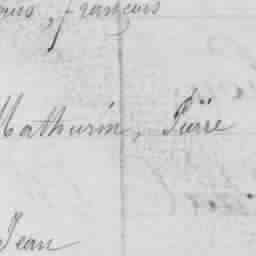 françois
Mathurin, Pierre
Jean